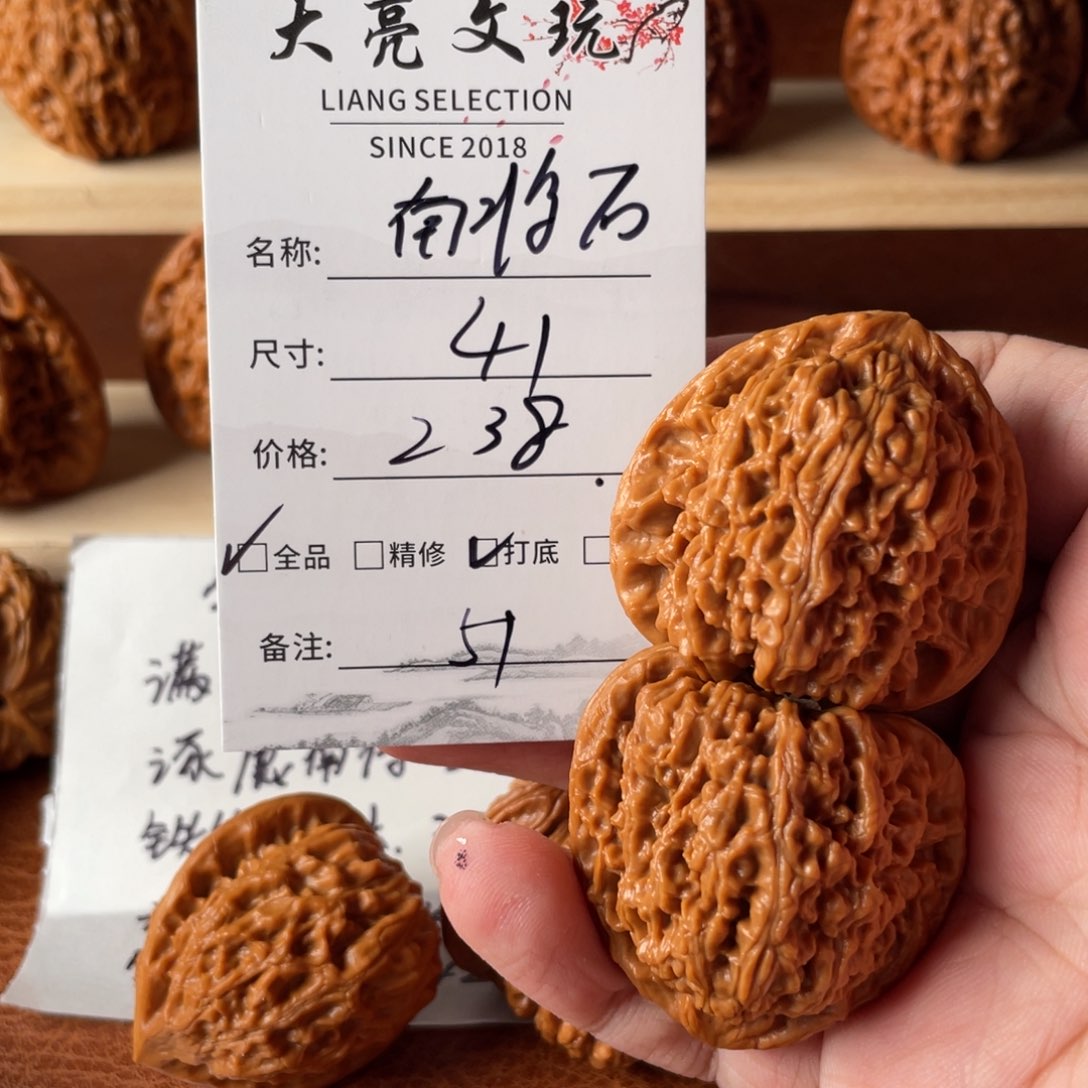 大亮文玩
LIANG SELECTION
SINCE 2018
名称: 南将石
尺寸: 41
价格: 238.
全品 精修 打底
备注: 51
满
涿鹿南将
铁